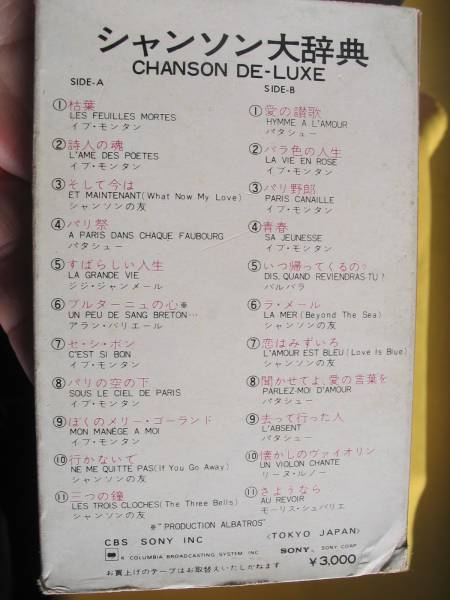 シャンソン大辞典
CHANSON DE-LUXE
SIDE-A
①枯葉
LES FEUILLES MORTES
イブ・モンタン
②詩人の魂
L'AME DES POETES
イブ・モンタン
③そして今は
ET MAINTENANT(What Now My Love)
シャンソンの友
④パリ祭
A PARIS DANS CHAQUE FAUBOURG
パタシュー
⑤すばらしい人生
LA GRANDE VIE
ジジ・ジャンメール
⑥ブルターニュの心※
UN PEU DE SANG BRETON…
アラン・バリエール
⑦セ・シ・ボン
C'EST SI BON
イブ・モンタン
⑧パリの空の下
SOUS LE CIEL DE PARIS
イブ・モンタン
⑨ぼくのメリー・ゴーランド
MON MANÉGE A MOI
イブ・モンタン
⑩行かないで
NE ME QUITTE PAS(If You Go Away)
シャンソンの友
⑪三つの鐘
LES TROIS CLOCHES(The Three Bells)
シャンソンの友
SIDE-B
①愛の讃歌
HYMME A L'AMOUR
パタシュー
②バラ色の人生
LA VIE EN ROSE
イブ・モンタン
③パリ野郎
PARIS CANAILLE
イブ・モンタン
④青春
SA JEUNESSE
イブ・モンタン
⑤いつ帰ってくるの?
DIS, QUAND REVIENDRAS-TU?
バルバラ
⑥ラ・メール
LA MER(Beyond The Sea)
シャンソンの友
⑦恋はみずいろ
L'AMOUR EST BLEU(Love Is Blue)
シャンソンの友
⑧聞かせてよ、愛の言葉を
PARLEZ-MOI D'AMOUR
パタシュー
⑨去って行った人
L'ABSENT
パタシュー
⑩懐かしのヴァイオリン
UN VIOLON CHANTE
リーヌ・ルノー
⑪さようなら
AU REVOIR
モーリス・シュバリエ
※"PRODUCTION ALBATROS"
CBS SONY INC 〈TOKYO JAPAN〉
COLUMBIA BROADCASTING SYSTEM INC SONY SONY CORP
お買上げのテープはお取替えいたしかねます ¥3,000